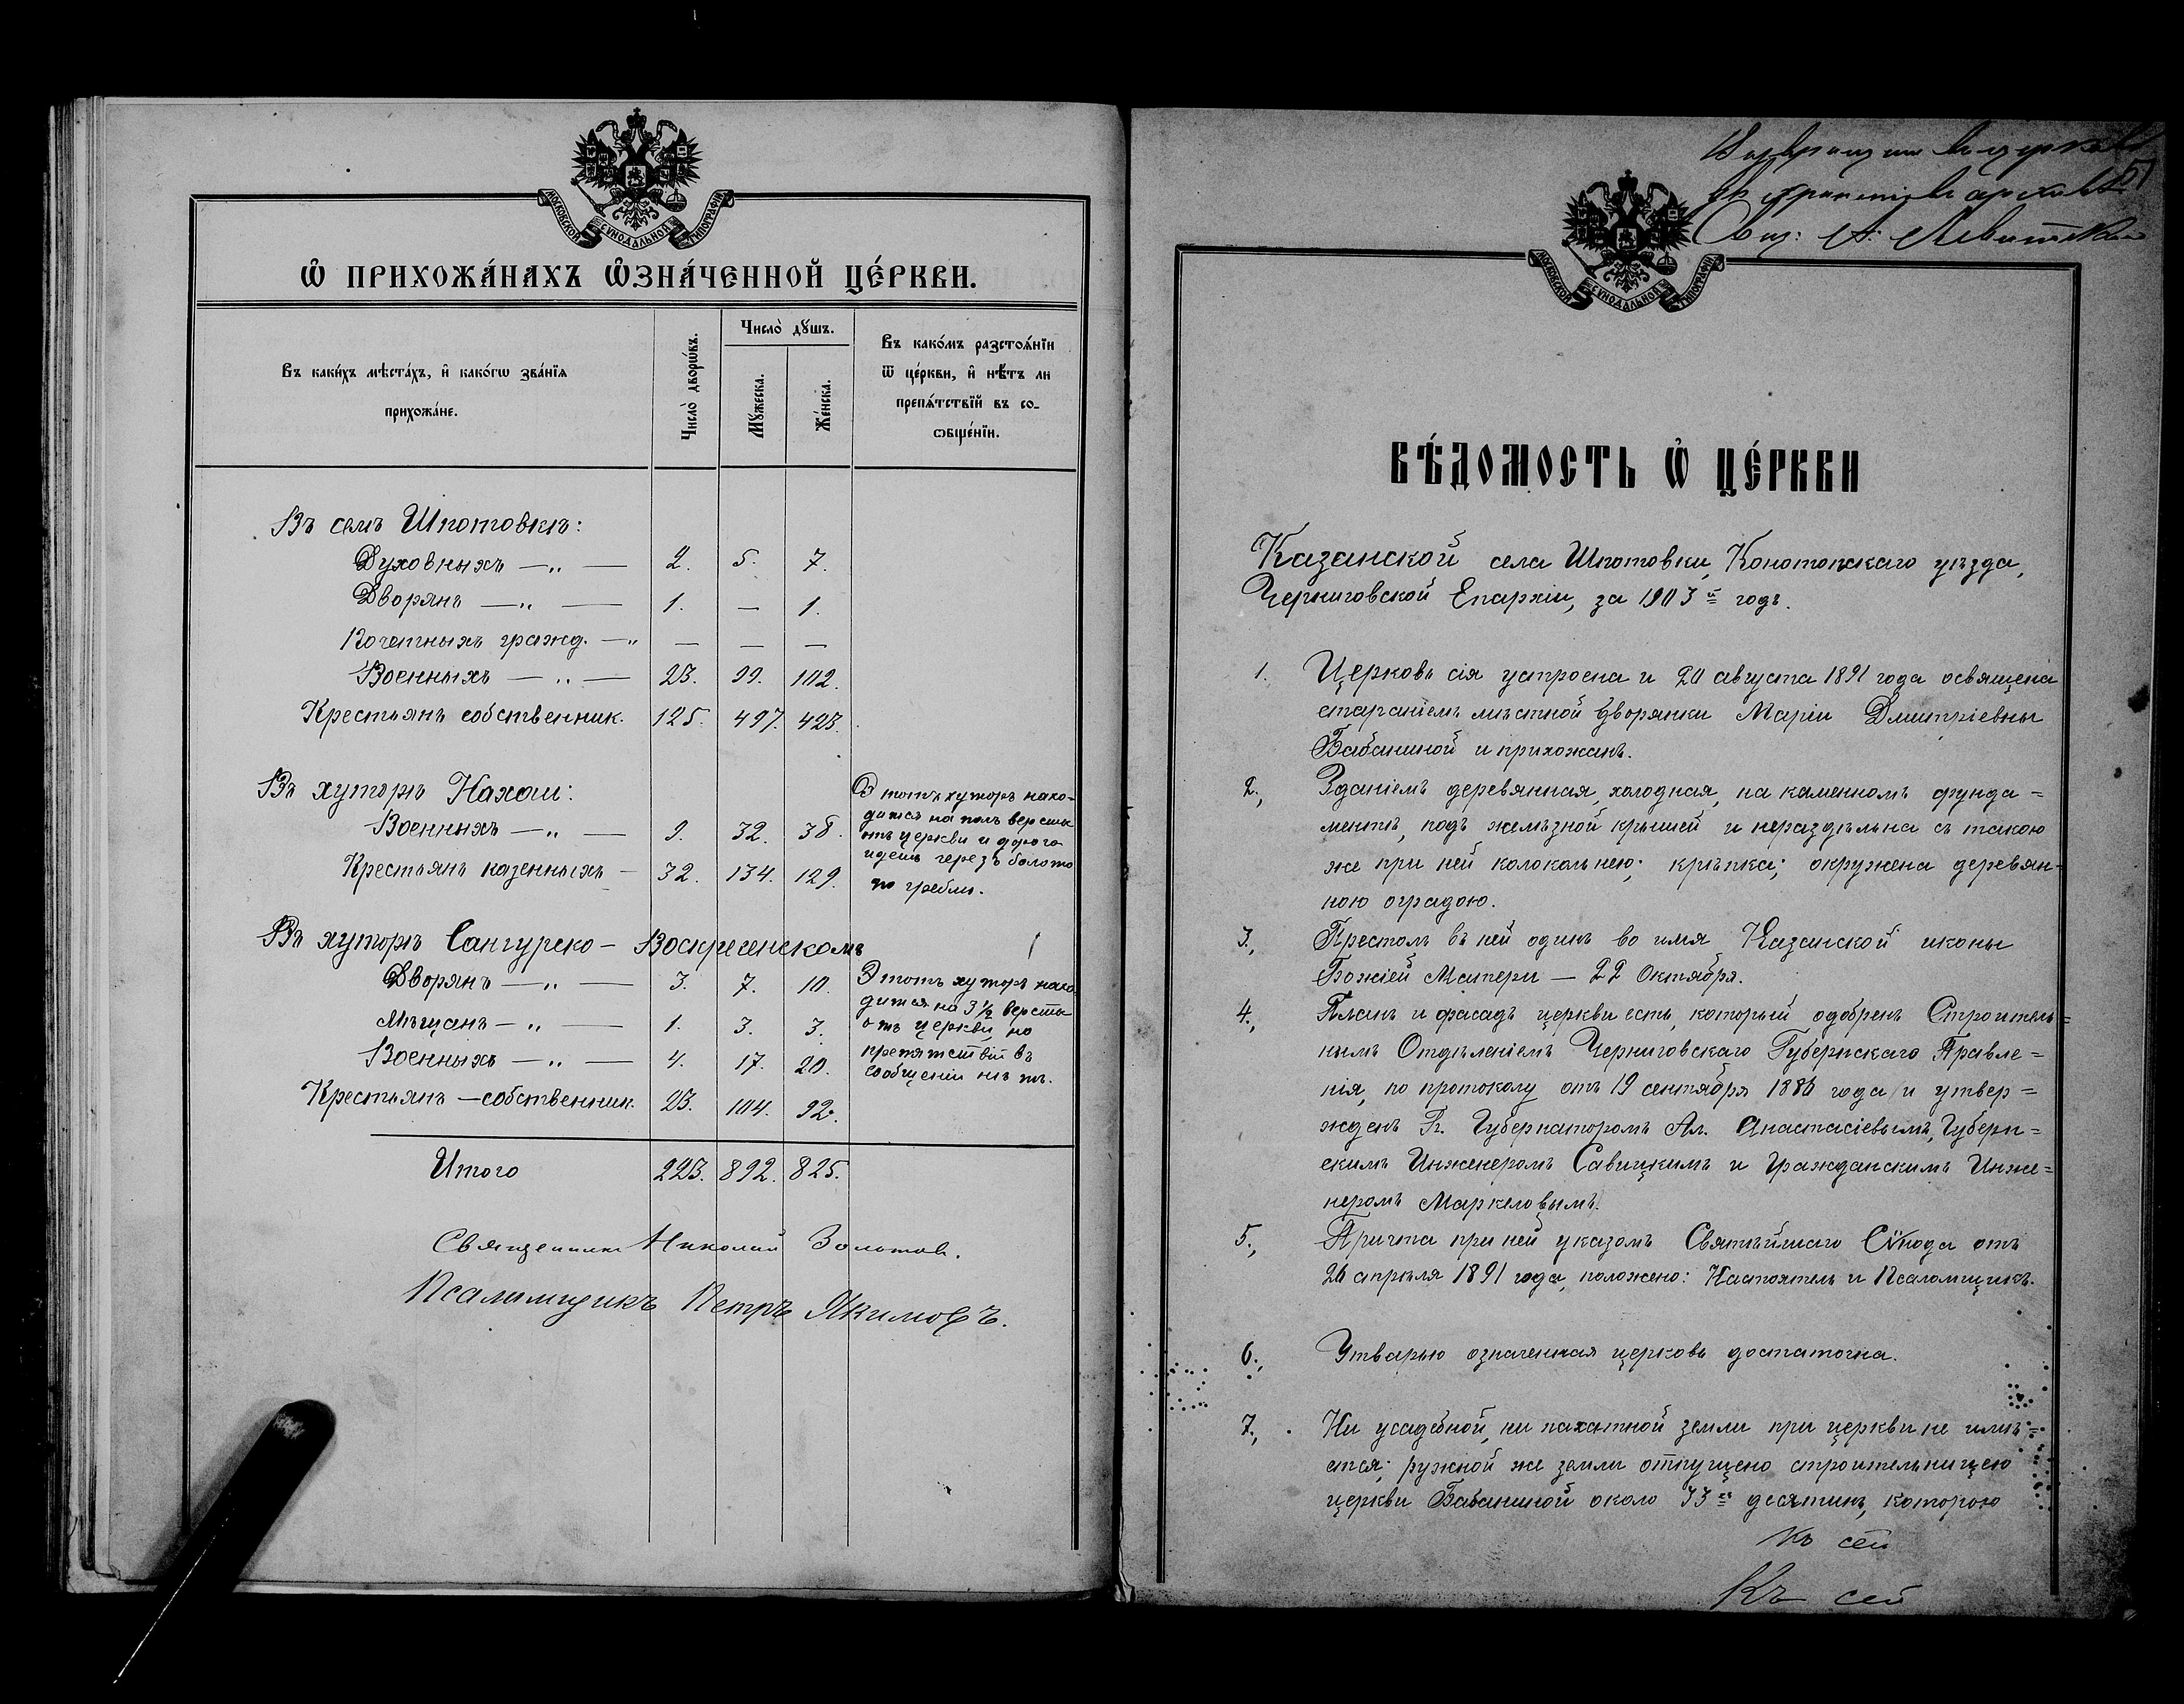 МОСКОВСКОЙ СѴНОДАЛЬНОЙ ТИПОГРАФІИ
Ѽ ПРИХОЖА́НАХЪ Ѡ҆ЗНА́ЧЕННОЙ ЦЕ́РКВИ.
Въ каки́хъ мѣста́хъ, и҆ како́гѡ зва́нїѧ
прихожа́не.
Число̀ дворѡ́въ.
Число̀ дꙋшъ.
Мꙋ́жеска.
Же́нска.
Въ како́мъ разстоѧ́нїи
ѿ це́ркви, и҆ нѣ́тъ ли
препѧ́тствїй въ со-
ѡбще́нїи.
Въ семъ Шпотовкѣ:
Духовныхъ —„— 2. 5. 7.
Дворянъ —„— 1. — 1.
Почетныхъ гражд. —„ — — —
Военныхъ —„— 23. 99. 102.
Крестьянъ собственник. 125. 497. 423.
Въ хуторѣ Нахаи:
Военныхъ —„— 9. 32. 38.
Крестьянъ казенныхъ — 32. 134. 129.
Этотъ хуторъ нахо-
дится на полъ версты
отъ церкви и дорога
идетъ черезъ болото
по гребли.
Въ хуторѣ Сангурско-Воскресенскомъ
Дворянъ —„— 3. 7. 10.
Мѣщанъ —„— 1. 3. 3.
Военныхъ —„— 4. 17. 20.
Крестьянъ —собственник. 23. 104. 92.
Этотъ хуторъ нахо-
дится на 3½ версты
отъ церкви, но
препятствій въ
сообщеніи нѣтъ.
Итого 223. 892. 825.
Священникъ Николай Золотов.
Псаломщикъ Петръ Якимовъ.
51
А. Левитскій
МОСКОВСКОЙ СѴНОДАЛЬНОЙ ТИПОГРАФІИ
ВѢ́ДОМОСТЬ Ѽ ЦЕ́РКВИ
Казанской села Шпотовки, Конотопскаго уѣзда,
Черниговской Епархіи, за 1903й годъ.
1. Церковь сія устроена и 20 августа 1891 года освящена
стараніемъ мѣстной дворянки Маріи Дмитріевны
Бабаниной и прихожанъ.
2., Зданіемъ деревянная, холодная, на каменномъ фунда=
ментѣ, подъ желѣзной крышей и нераздѣльна съ такою
же при ней колокольнею; крѣпка; окружена деревян-
ною оградою.
3., Престолъ въ ней одинъ во имя Казанской иконы
Божіей Матери — 22 Октября.
4., Планъ и фасадъ церкви есть, который одобренъ Строитель=
нымъ Отдѣленіемъ Черниговскаго Губернскаго Правле=
нія, по протоколу отъ 19 сентября 1886 года и утвер=
жденъ Г. Губернаторомъ Ал. Анастасіевымъ, Губерн=
скимъ Инженеромъ Савицкимъ и Гражданскимъ Инже=
неромъ Маркеловымъ.
5., Причта при ней указомъ Святѣйшаго Сѵнода отъ
26 апрѣля 1891 года, положено: Настоятель и Псаломщикъ.
6., Утварью означенная церковь достаточна.
7., Ни усадебной, ни пахатной земли при церкви не имѣ=
ется; ружной же земли отпущено строительницею
церкви Бабаниной около 33хъ десятинъ, которою
къ сей
Къ сей